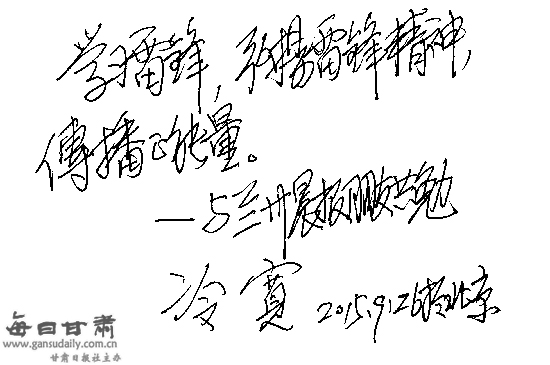 学习雷锋，弘揚雷锋精神，
傳播正能量。
——与兰州晨报朋友共勉
冷寛 2015.9.26於北京
每日甘肃
www.gansudaily.com.cn
甘肃日报社主办